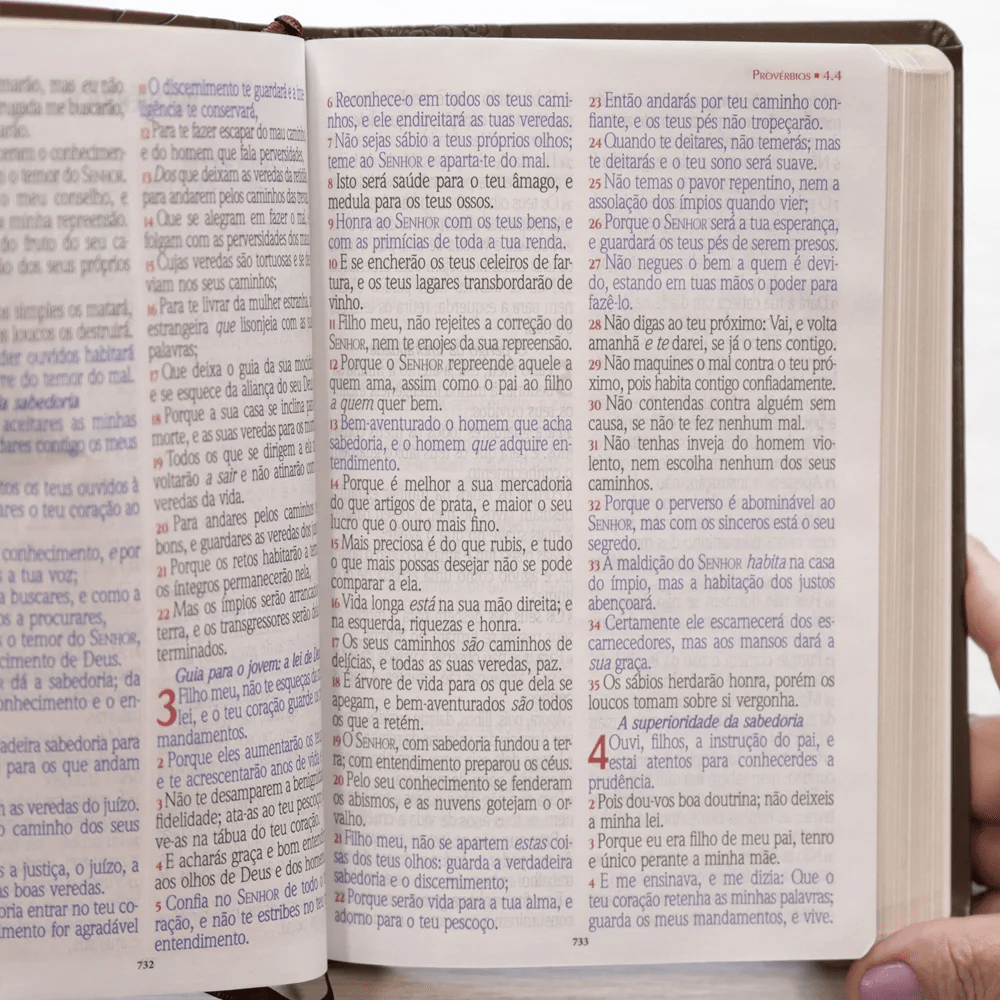 marão, mas eu não
me buscarão,
o conhecimen-
o temor do SENHOR.
o meu conselho, e
minha repreensão.
do fruto do seu ca-
dos seus próprios
simples os matará,
loucos os destruirá.
der ouvidos habitará
do temor do mal.
sabedoria
aceitares as minhas
contigo os meus
os teus ouvidos à
o teu coração ao
conhecimento, e por
a tua voz;
a buscares, e como a
a procurares,
o temor do SENHOR,
cimento de Deus.
dá a sabedoria; da
conhecimento e o en-
sabedoria para
para os que andam
as veredas do juízo.
caminho dos seus
a justiça, o juízo, a
boas veredas.
entrar no teu co-
for agradável
11 O discernimento te guardará e a
te conservará,
12 Para te fazer escapar do mau caminho
e do homem que fala perversidades,
13 Dos que deixam as veredas da
para andarem pelos caminhos das
14 Que se alegram em fazer o mal,
folgam com as perversidades dos
15 Cujas veredas são tortuosas e
viam nos seus caminhos;
16 Para te livrar da mulher estranha,
estrangeira que lisonjeia com as
palavras;
17 Que deixa o guia da sua
e se esquece da aliança do seu
18 Porque a sua casa se inclina
morte, e as suas veredas para os
19 Todos os que se dirigem a
voltarão a sair e não atinarão
veredas da vida.
20 Para andares pelos caminhos
bons, e guardares as veredas dos
21 Porque os retos habitarão a
os íntegros permanecerão nela,
22 Mas os ímpios serão
terra, e os transgressores serão
terminados.
Guia para o jovem: a lei de
3 Filho meu, não te esqueças
lei, e o teu coração guarde
mandamentos.
2 Porque eles aumentarão os
e te acrescentarão anos de vida
3 Não te desamparem a
fidelidade; ata-as ao teu pescoço
ve-as na tábua do teu coração.
4 E acharás graça e bom
aos olhos de Deus e dos
5 Confia no SENHOR de todo o
ração, e não te estribes no teu
entendimento.
732
PROVÉRBIOS ■ 4.4
6 Reconhece-o em todos os teus cami-
nhos, e ele endireitará as tuas veredas.
7 Não sejas sábio a teus próprios olhos;
teme ao SENHOR e aparta-te do mal.
8 Isto será saúde para o teu âmago, e
medula para os teus ossos.
9 Honra ao SENHOR com os teus bens, e
com as primícias de toda a tua renda.
10 E se encherão os teus celeiros de far-
tura, e os teus lagares transbordarão de
vinho.
11 Filho meu, não rejeites a correção do
SENHOR, nem te enojes da sua repreensão.
12 Porque o SENHOR repreende aquele a
quem ama, assim como o pai ao filho
a quem quer bem.
13 Bem-aventurado o homem que acha
sabedoria, e o homem que adquire en-
tendimento.
14 Porque é melhor a sua mercadoria
do que artigos de prata, e maior o seu
lucro que o ouro mais fino.
15 Mais preciosa é do que rubis, e tudo
o que mais possas desejar não se pode
comparar a ela.
16 Vida longa está na sua mão direita; e
na esquerda, riquezas e honra.
17 Os seus caminhos são caminhos de
delícias, e todas as suas veredas, paz.
18 É árvore de vida para os que dela se
apegam, e bem-aventurados são todos
os que a retém.
19 O SENHOR, com sabedoria fundou a ter-
ra; com entendimento preparou os céus.
20 Pelo seu conhecimento se fenderam
os abismos, e as nuvens gotejam o or-
valho.
21 Filho meu, não se apartem estas coi-
sas dos teus olhos: guarda a verdadeira
sabedoria e o discernimento;
22 Porque serão vida para a tua alma, e
adorno para o teu pescoço.
23 Então andarás por teu caminho con-
fiante, e os teus pés não tropeçarão.
24 Quando te deitares, não temerás; mas
te deitarás e o teu sono será suave.
25 Não temas o pavor repentino, nem a
assolação dos ímpios quando vier;
26 Porque o SENHOR será a tua esperança,
e guardará os teus pés de serem presos.
27 Não negues o bem a quem é devi-
do, estando em tuas mãos o poder para
fazê-lo.
28 Não digas ao teu próximo: Vai, e volta
amanhã e te darei, se já o tens contigo.
29 Não maquines o mal contra o teu pró-
ximo, pois habita contigo confiadamente.
30 Não contendas contra alguém sem
causa, se não te fez nenhum mal.
31 Não tenhas inveja do homem vio-
lento, nem escolha nenhum dos seus
caminhos.
32 Porque o perverso é abominável ao
SENHOR, mas com os sinceros está o seu
segredo.
33 A maldição do SENHOR habita na casa
do ímpio, mas a habitação dos justos
abençoará.
34 Certamente ele escarnecerá dos es-
carnecedores, mas aos mansos dará a
sua graça.
35 Os sábios herdarão honra, porém os
loucos tomam sobre si vergonha.
A superioridade da sabedoria
4 Ouvi, filhos, a instrução do pai, e
estai atentos para conhecerdes a
prudência.
2 Pois dou-vos boa doutrina; não deixeis
a minha lei.
3 Porque eu era filho de meu pai, tenro
e único perante a minha mãe.
4 E me ensinava, e me dizia: Que o
teu coração retenha as minhas palavras;
guarda os meus mandamentos, e vive.
733